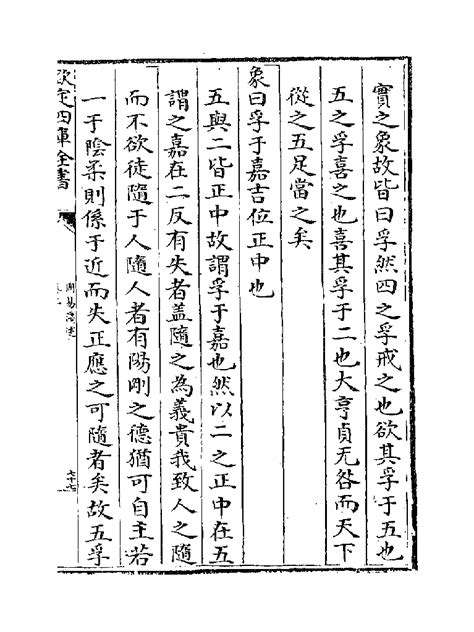 實之象故皆曰孚然四之孚戒之也欲其孚于五也
五之孚喜之也喜其孚于二也大亨貞无咎而天下
從之五足當之矣
象曰孚于嘉吉位正中也
五與二皆正中故謂孚于嘉也然以二之正中在五
謂之嘉在二反有失者盖隨之為義貴我致人之隨
而不欲徒隨于人隨人者有陽剛之德猶可自主若
一于陰柔則係于近而失正應之可隨者矣故五孚
欽定四庫全書